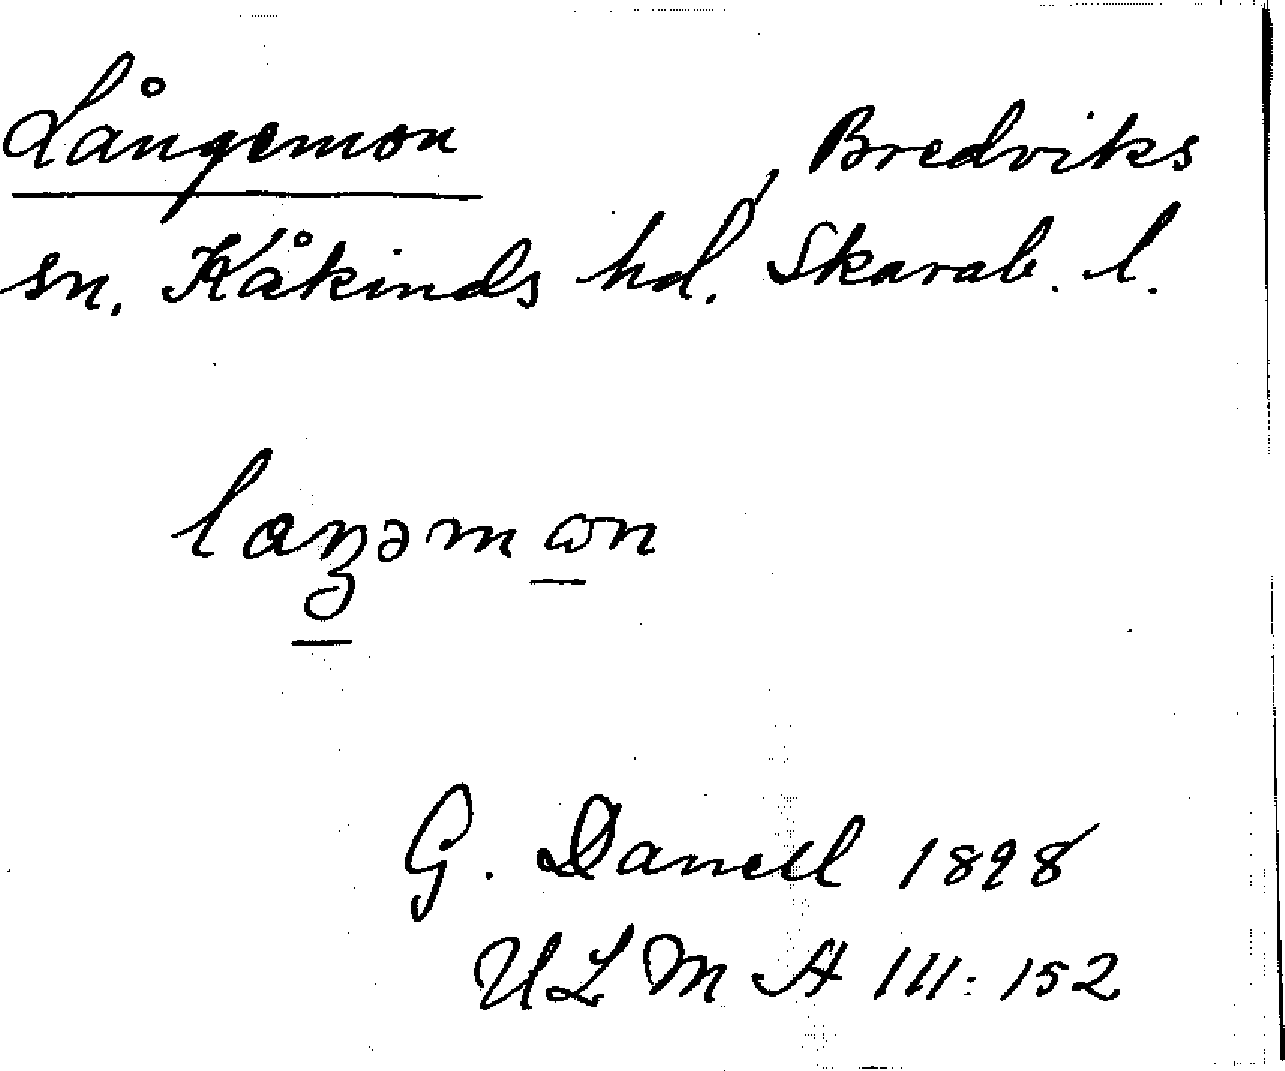 Långemon , Bredviks
sn. Kåkinds hd. Skarab. l.
G. Danell 1898
ULMA 111:152